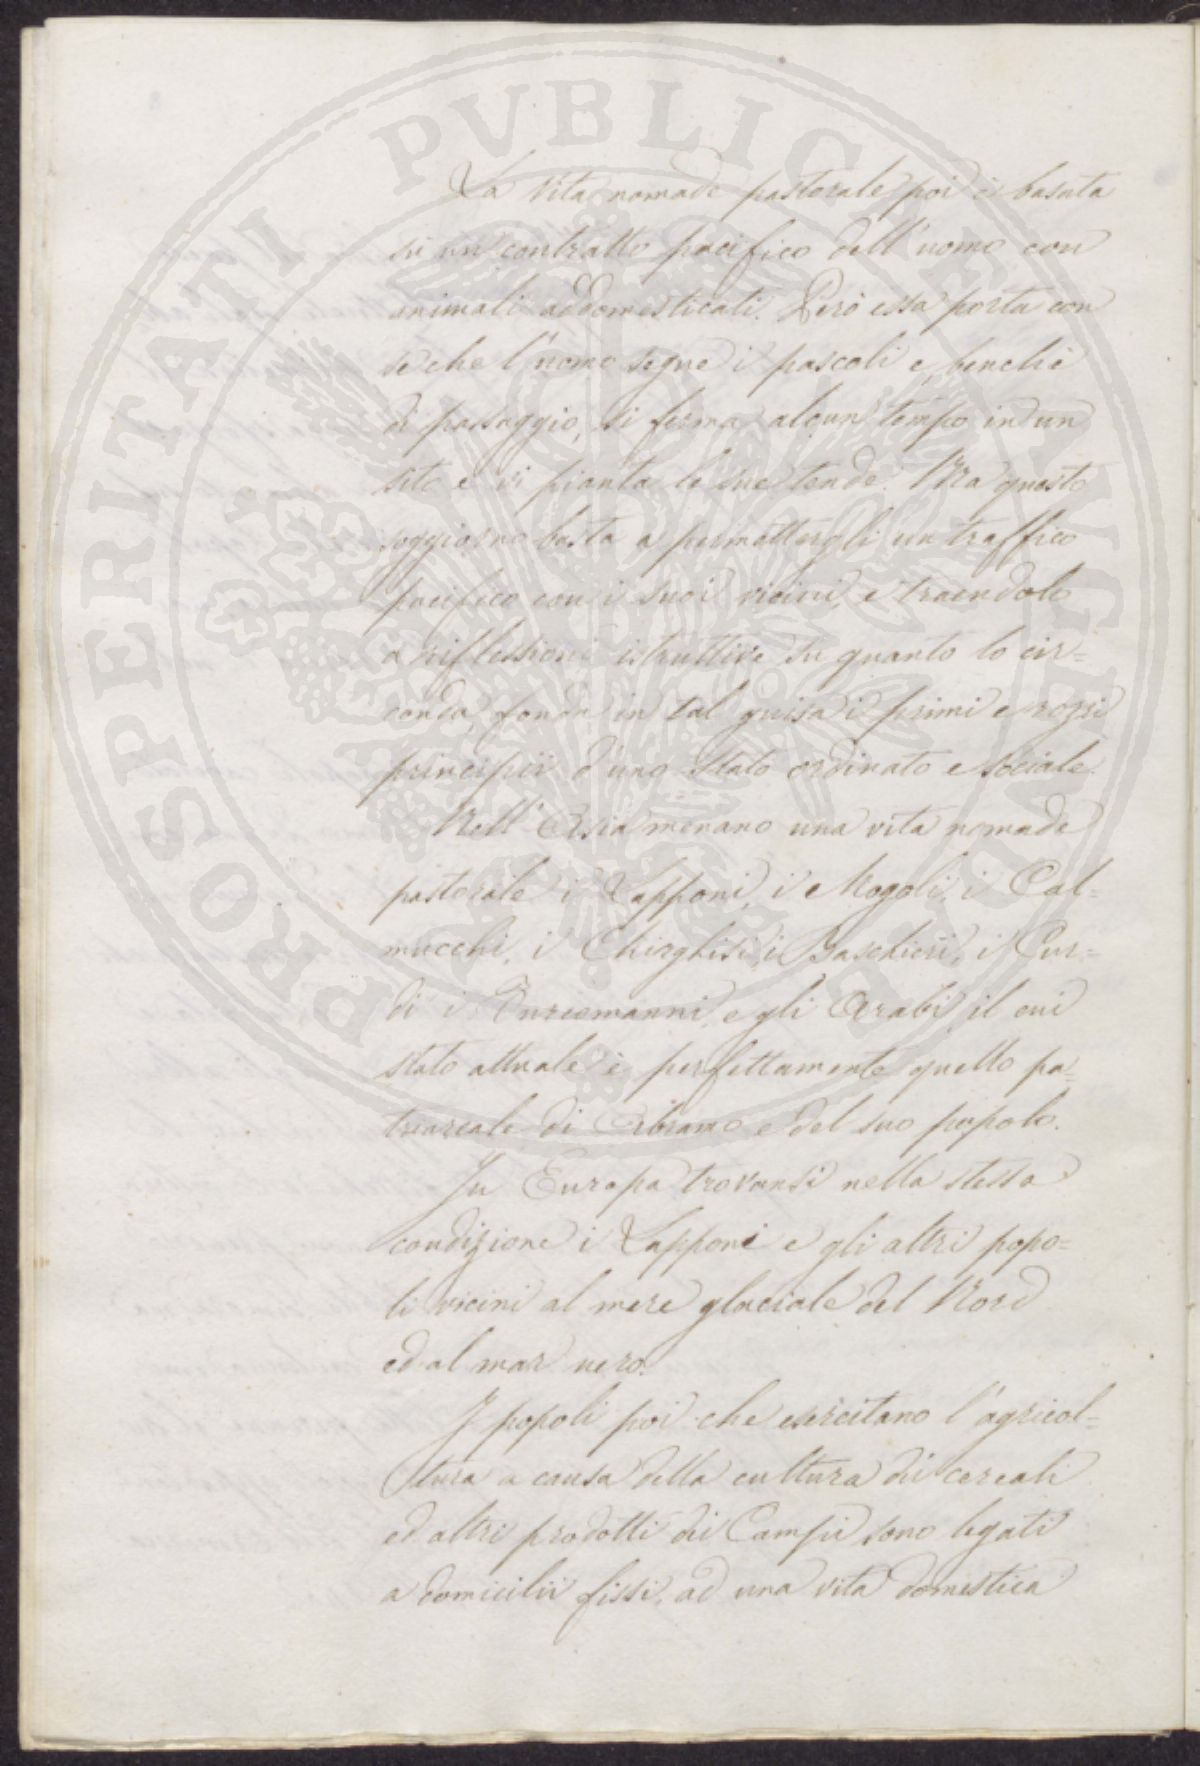 PROSPERITATI PVBLICAE AVGENDAE
La vita nomade pastorale poi è basata
su un contratto pacifico dell'uomo con
animali addomesticati. Però essa porta con
se che l'uomo segue i pascoli e, benchè
di passaggio, si ferma alcun tempo in un
sito e vi pianta le sue tende. Ma questo
soggiorno basta a permettergli un traffico
pacifico con i suoi vicini, e traendolo
a riflessioni istruttive su quanto lo cir=
conda, fonda in tal guisa i primi e rozzi
principii d'uno stato ordinato e sociale.
Nell'Asia menano una vita nomade
pastorale i Lapponi, i Mogoli, i Cal=
mucchi, i Chirghisi, i Baschieri, i Cur=
di i Turcomanni, e gli Arabi, il cui
stato attuale è perfettamente quello pa=
triarcale di Abramo e del suo popolo.
In Europa trovansi nella stessa
condizione i Lapponi e gli altri popo=
li vicini al mare glaciale del Nord
ed al mar nero.
I popoli poi che esercitano l'agricol=
tura a causa della cultura dei cereali
ed altri prodotti dei Campi sono legati
a domicilii fissi, ad una vita domestica